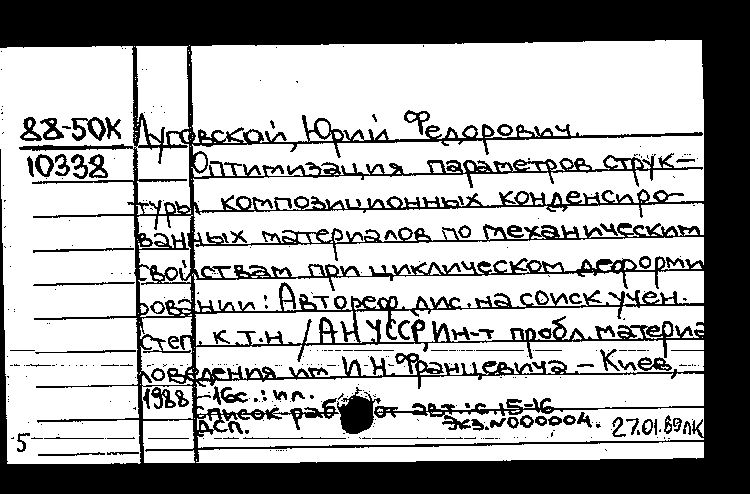 88-50К Луговской, Юрий Федорович.
10338 Оптимизация параметров струк-
туры композиционных конденсиро-
ванных материалов по механическим
свойствам при циклическом деформи
ровании: Автореф. дис. на соиск. учен.
степ. к.т.н. /АН УССР, Ин-т пробл. материа
ловедения им И.Н. Францевича. - Киев,
1988 -16с.: ил.
Список раб от авт.: с. 15-16
ДСП. Экз. N000004. 27.01.89 ЛК
5